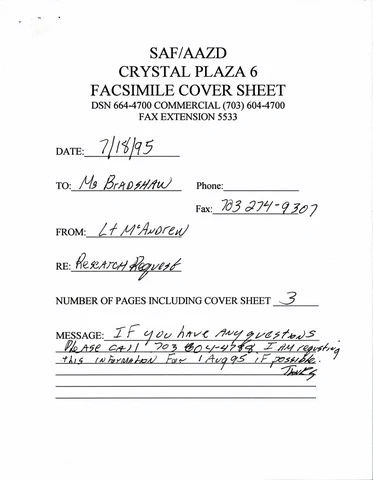 SAF/AAZD
CRYSTAL PLAZA 6
FACSIMILE COVER SHEET
DSN 664-4700 COMMERCIAL (703) 604-4700
FAX EXTENSION 5533
DATE: 7/18/95
TO: Ms BRADSHAW Phone:
Fax: 703 274-9307
FROM: Lt McAndrew
RE: Research Request
NUMBER OF PAGES INCLUDING COVER SHEET 3
MESSAGE: IF you have ANY questions
Please call 703 I AM requesting
this information For 1 Aug 95 if possible.
Thanks